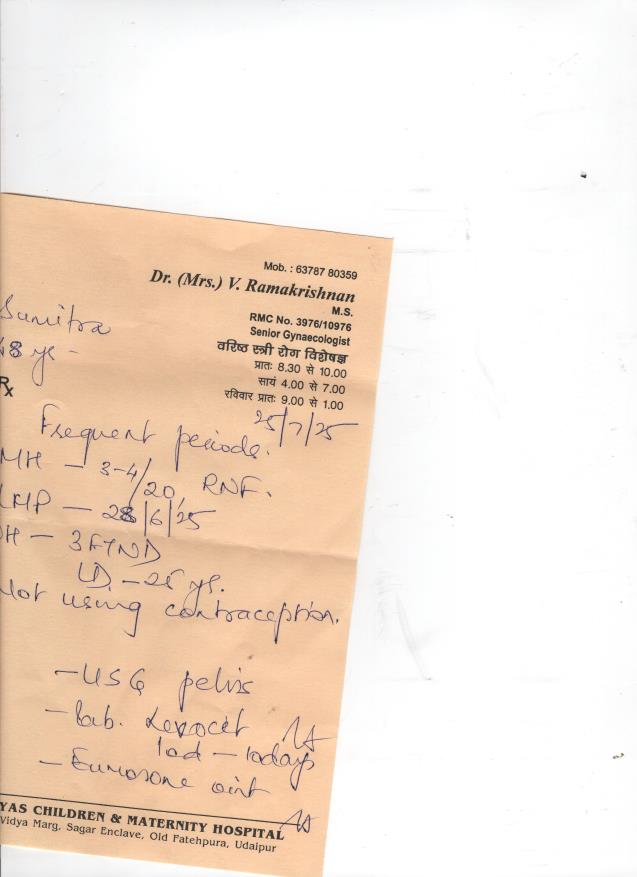 Mob. : 63787 80359
Dr. (Mrs.) V. Ramakrishnan
M.S.
RMC No. 3976/10976
Senior Gynaecologist
वरिष्ठ स्त्री रोग विशेषज्ञ
प्रातः 8.30 से 10.00
सायं 4.00 से 7.00
रविवार प्रातः 9.00 से 1.00
Sumitra
48 ys -
Rx
25/7/25
Frequent periods.
MH - 3-4/20, RNF.
LMP - 28/6/25
OH - 3FTND
LD - 25 ys.
Not using contraception.
- USG pelvis
- Tab. Levocet
1od - 10days
- Eumosone oint
YAS CHILDREN & MATERNITY HOSPITAL
Vidya Marg, Sagar Enclave, Old Fatehpura, Udaipur